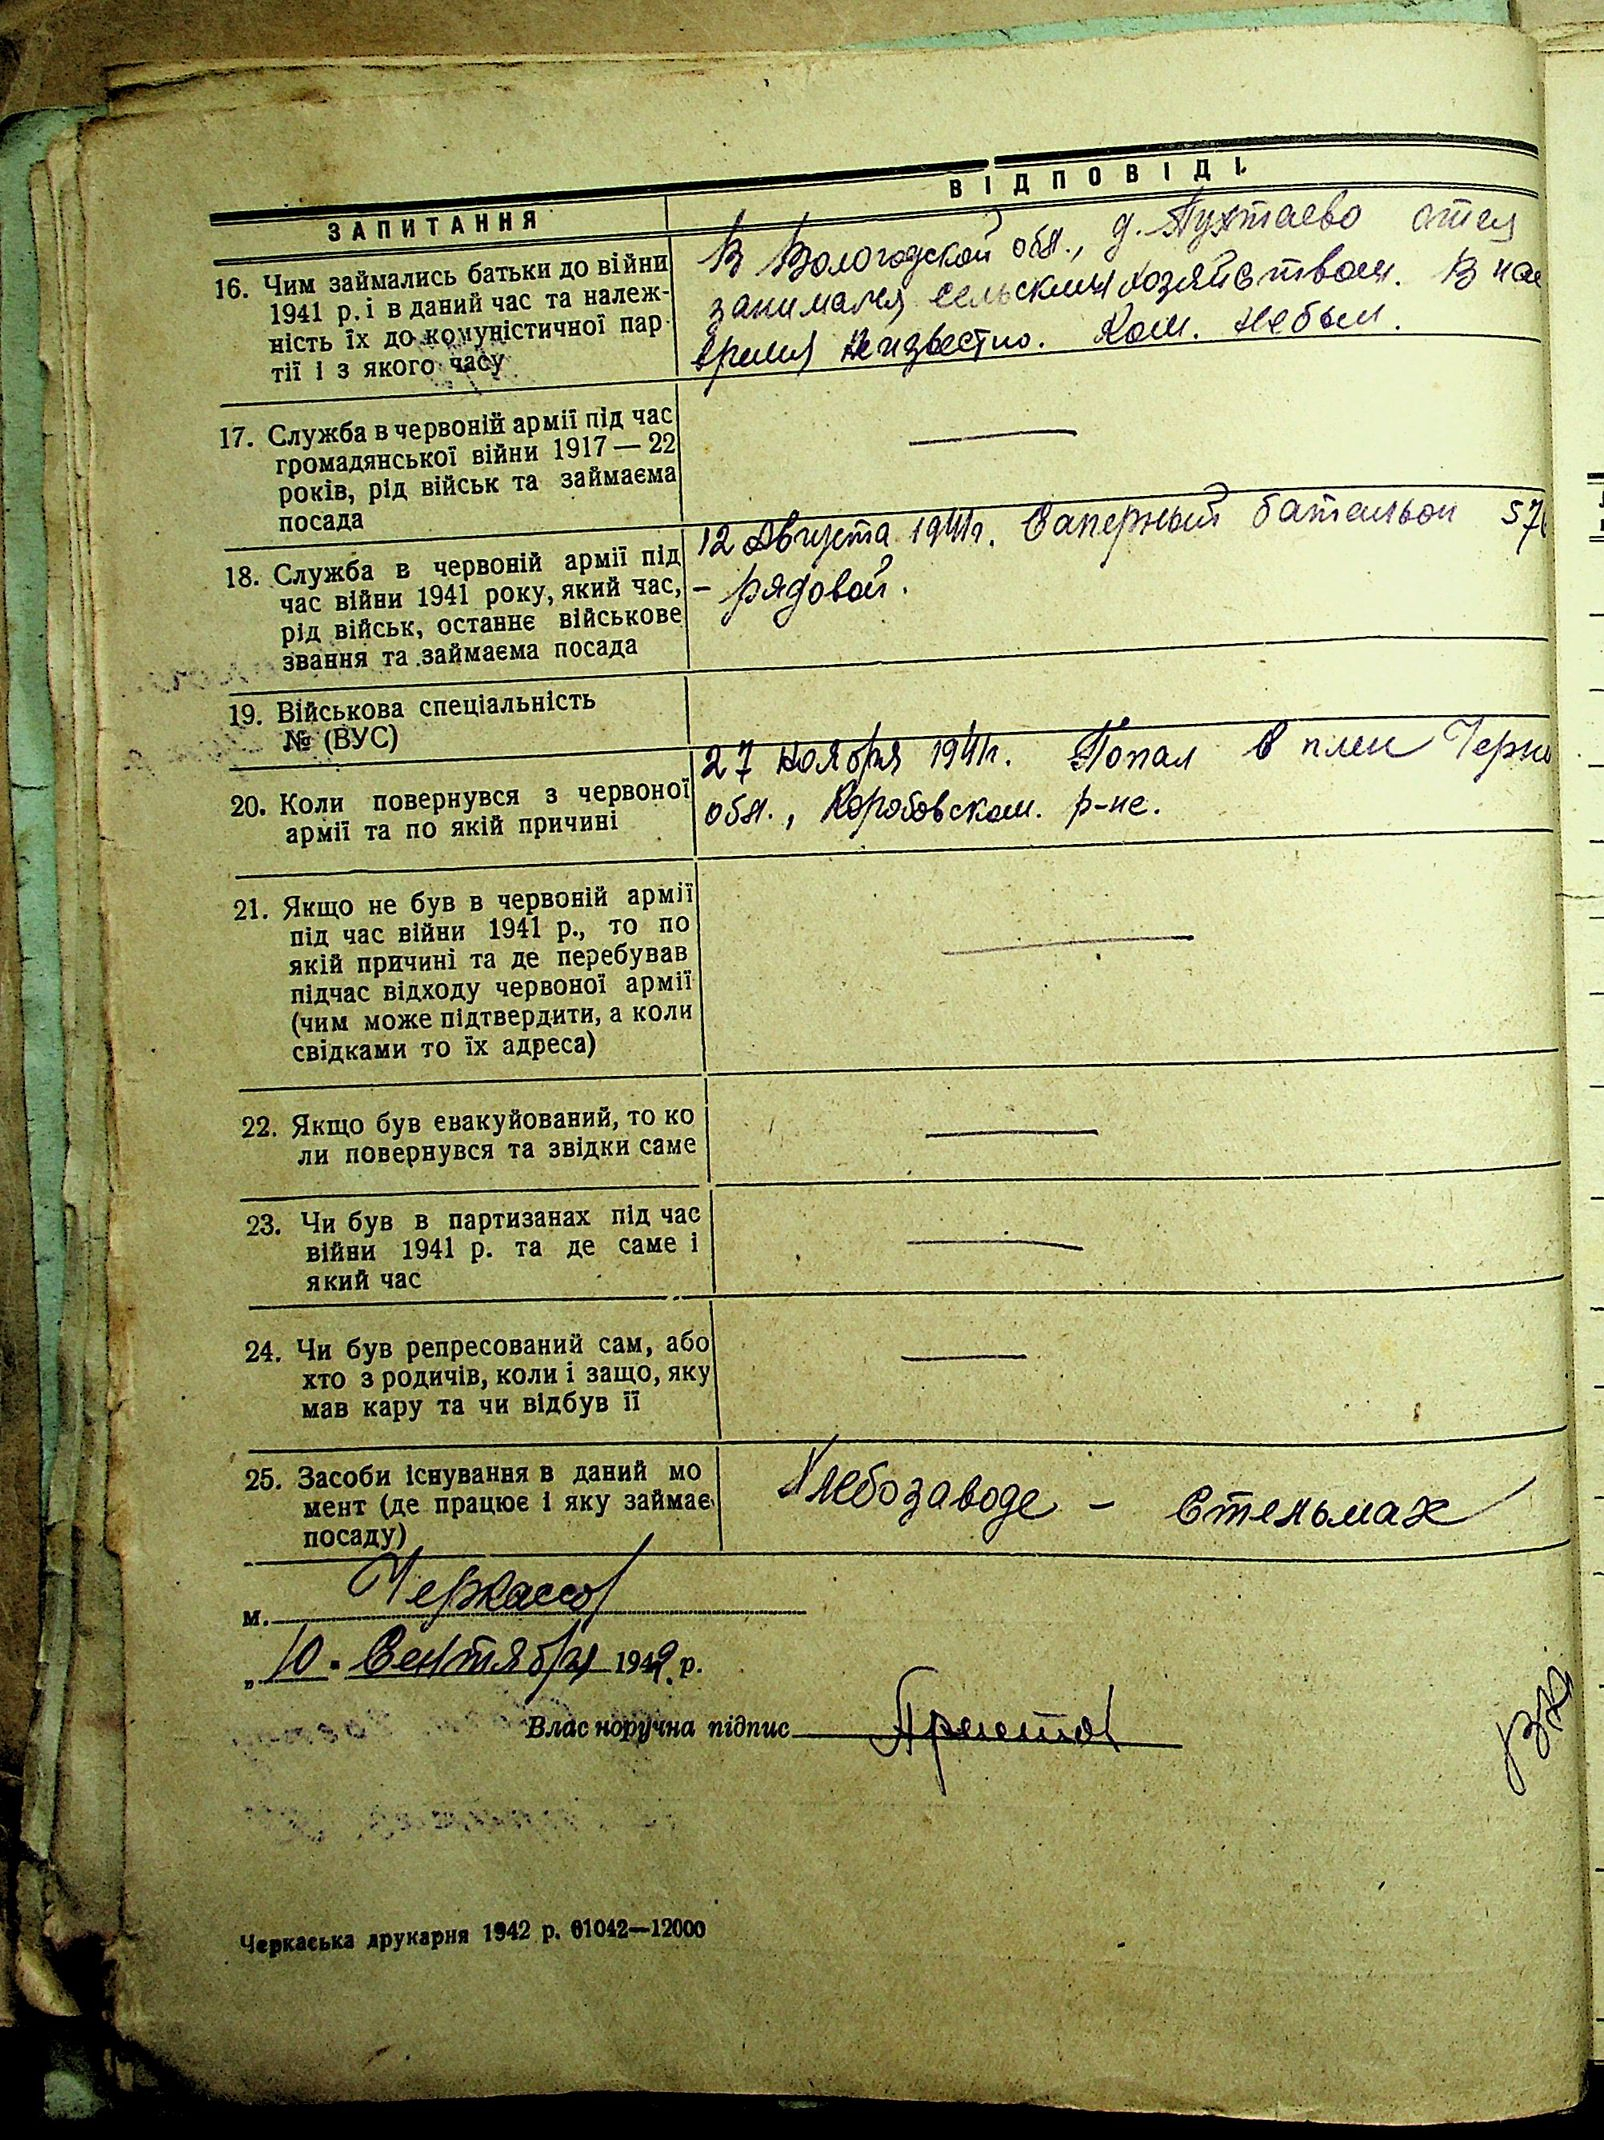 ЗАПИТАННЯ
ВІДПОВІДІ.
16. Чим займались батьки до війни
1941 р. і в даний час та належ-
ність їх до комуністичної пар
тії і з якого часу
В Вологодской обл., д. Пухтаево отец
занимался сельским хозяйством. В нас
время неизвестно. Ком. не был.
17. Служба в червоній армії під час
громадянської війни 1917 — 22
років, рід військ та займаєма
посада
18. Служба в червоній армії під
час війни 1941 року, який час,
рід військ, останнє військове
звання та займаєма посада
12 Августа 1941г. Саперный батальон 576
– рядовой.
19. Військова спеціальність
№ (ВУС)
20. Коли повернувся з червоної
армії та по якій причині
27 ноября 1941г. Попал в плен Черни
обл., Коробовском. р-не.
21. Якщо не був в червоній армії
під час війни 1941 р., то по
якій причині та де перебував
підчас відходу червоної армії
(чим може підтвердити, а коли
свідками то їх адреса)
22. Якщо був евакуйований, то ко
ли повернувся та звідки саме
23. Чи був в партизанах під час
війни 1941 р. та де саме і
який час
24. Чи був репресований сам, або
хто з родичів, коли і защо, яку
мав кару та чи відбув її
25. Засоби існування в даний мо
мент (де працює і яку займає
посаду)
Хлебозаводе – стельмах
м. Черкассы
„10. Сентября 1942 р.
Влас норучна підпис
Черкаська друкарня 1942 р. 61042—12000